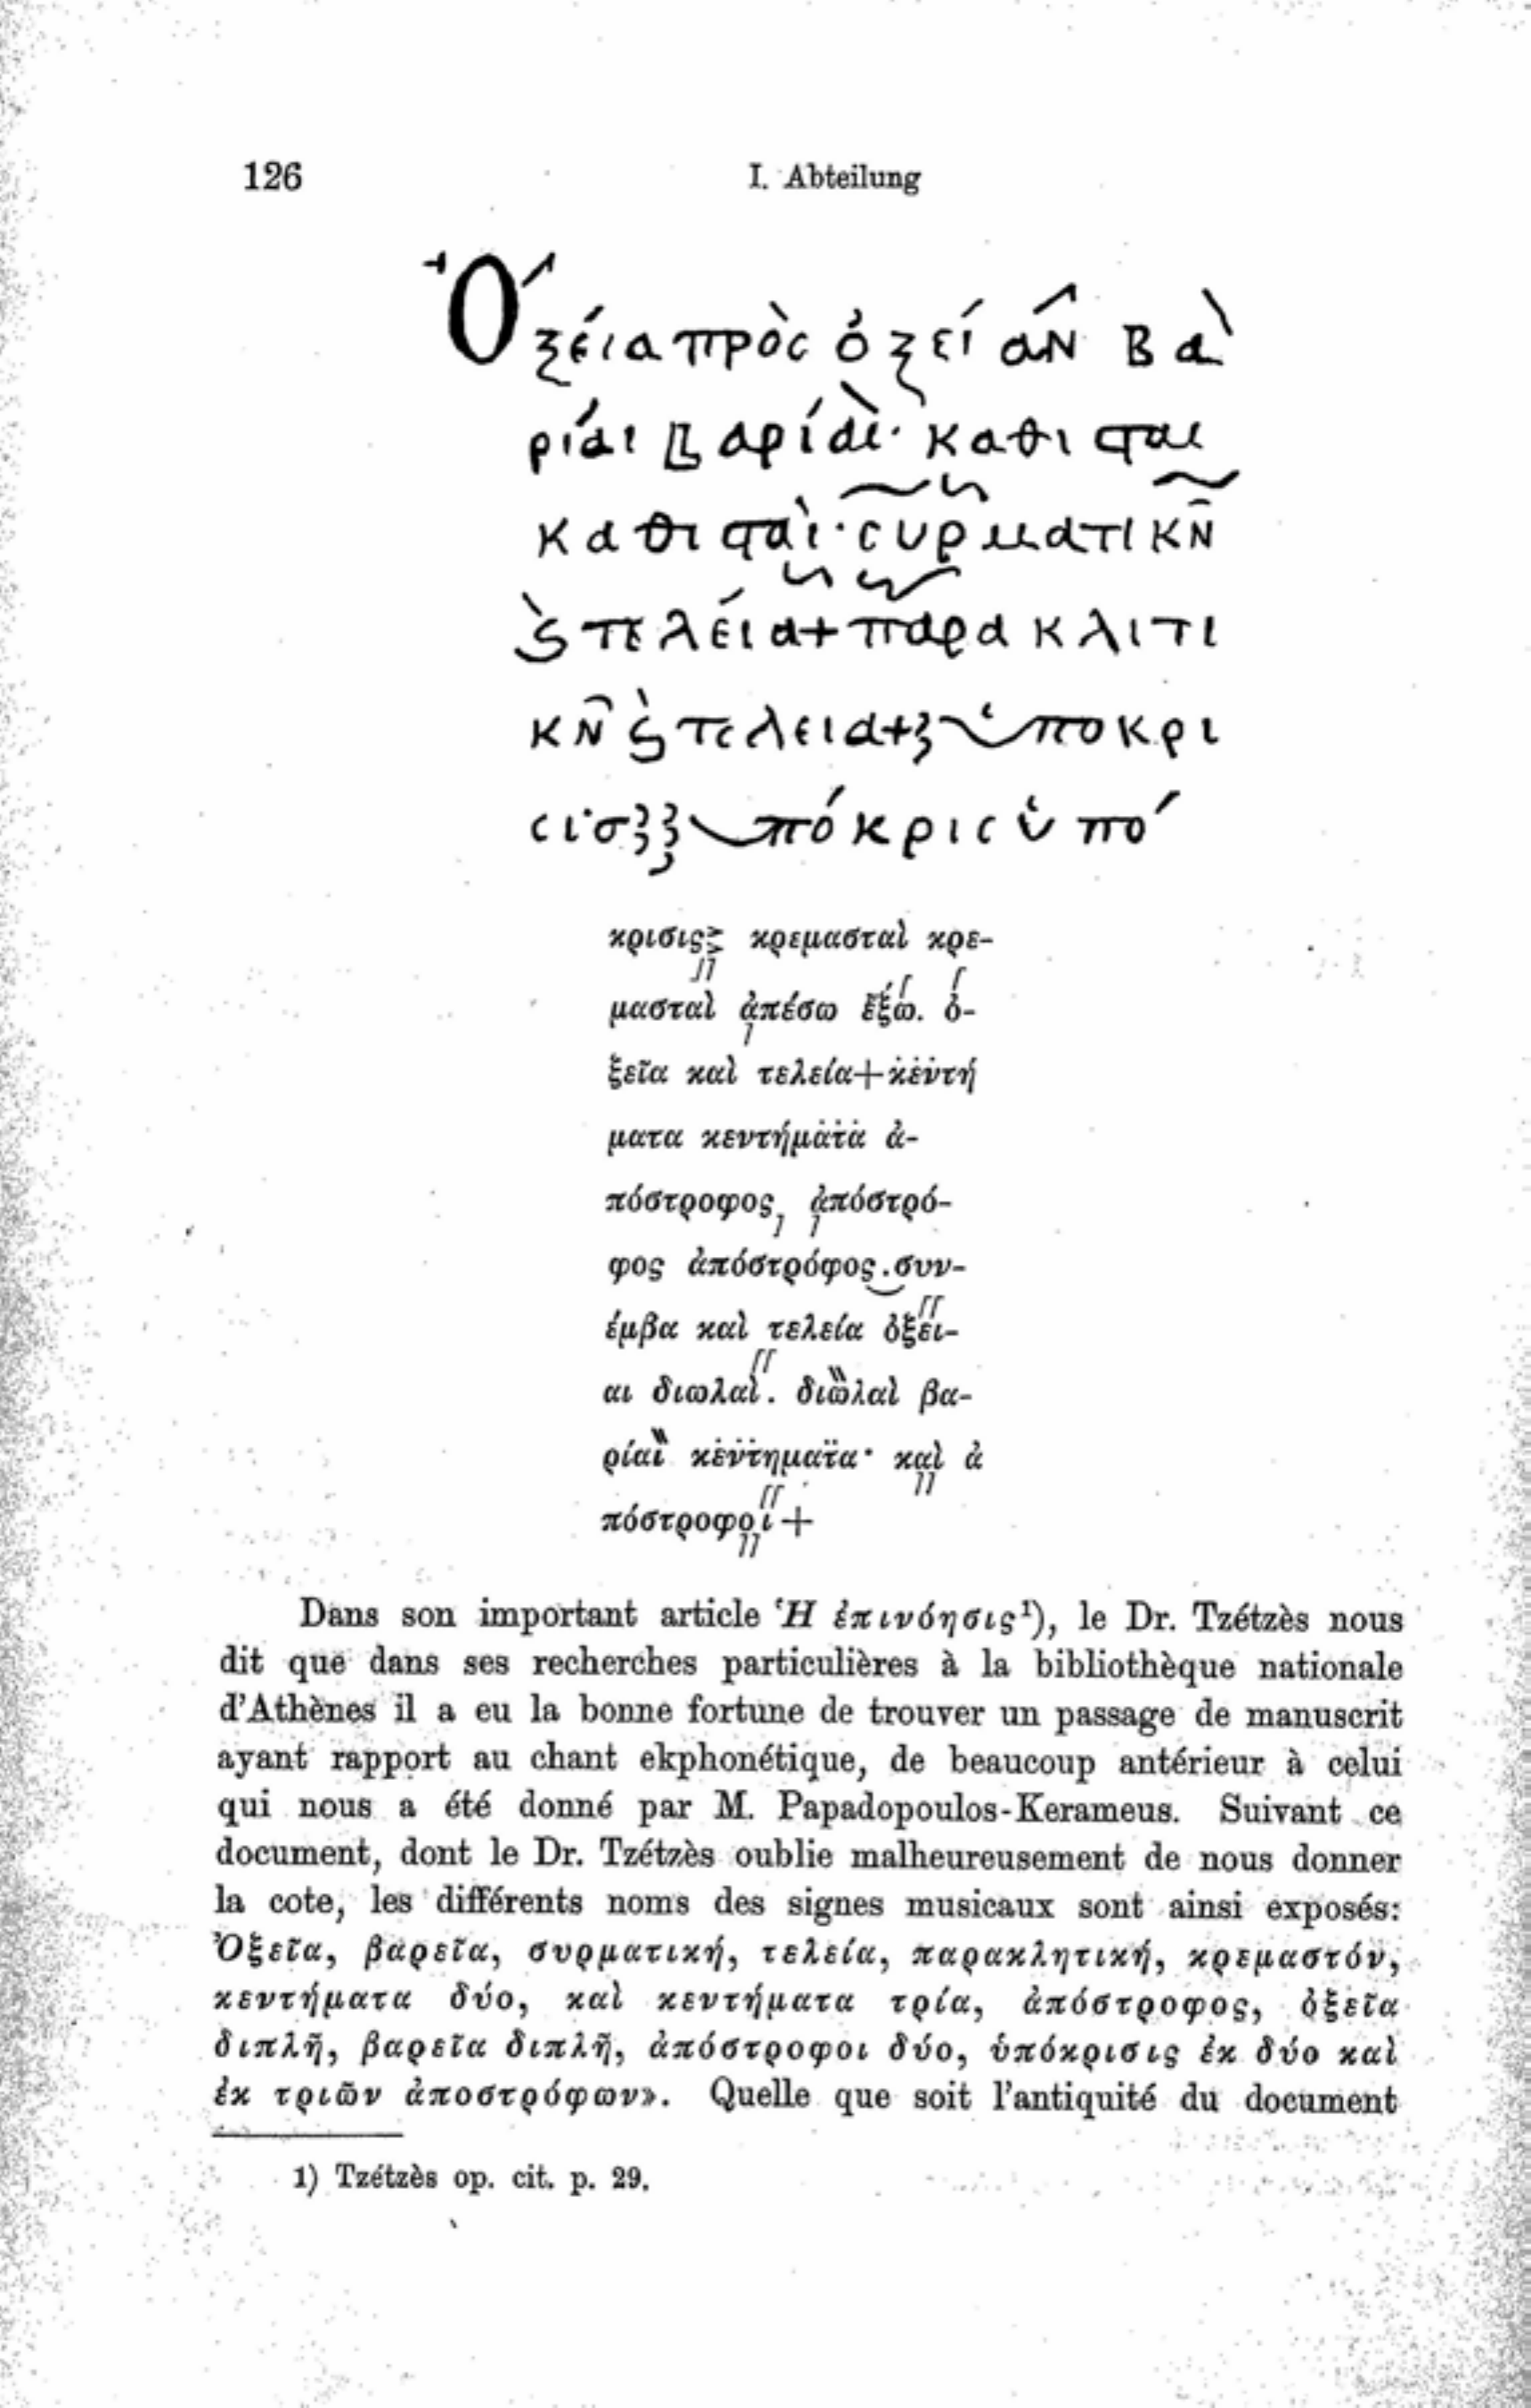 126
I. Abteilung
Ὀξεία πρὸς ὀξείαν βα
ρίαι βαρίαὶ· καθισται
κατισταὶ· συρματικὴν
ς τελεία+παρακλιτι
κὴν ς τελεια+ξ ὑποκρι
σισ ποκρις ὑπό
κρισις κρεμασταὶ κρε-
μασταὶ ἀπέσω ἔξω. ὀ-
ξεῖα καὶ τελεία+κεντή
ματα κεντήματα ἀ-
πόστροφος, ἀπόστρό-
φος ἀπόστρόφος.συν-
έμβα καὶ τελεία ὀξει-
αι διωλαὶ. διωλαὶ βα-
ρίαι κεντηματα· καὶ ἀ
πόστροφοι+
Dans son important article Ἡ ἐπινόησις¹), le Dr. Tzétzès nous
dit que dans ses recherches particulières à la bibliothèque nationale
d'Athènes il a eu la bonne fortune de trouver un passage de manuscrit
ayant rapport au chant ekphonétique, de beaucoup antérieur à celui
qui nous a été donné par M. Papadopoulos-Kerameus. Suivant ce
document, dont le Dr. Tzétzès oublie malheureusement de nous donner
la cote, les différents noms des signes musicaux sont ainsi exposés:
Ὀξεῖα, βαρεῖα, συρματική, τελεία, παρακλητική, κρεμαστόν,
κεντήματα δύο, καὶ κεντήματα τρία, ἀπόστροφος, ὀξεῖα
διπλῆ, βαρεῖα διπλῆ, ἀπόστροφοι δύο, ὑπόκρισις ἐκ δύο καὶ
ἐκ τριῶν ἀποστρόφων». Quelle que soit l'antiquité du document
1) Tzétzès op. cit. p. 29.